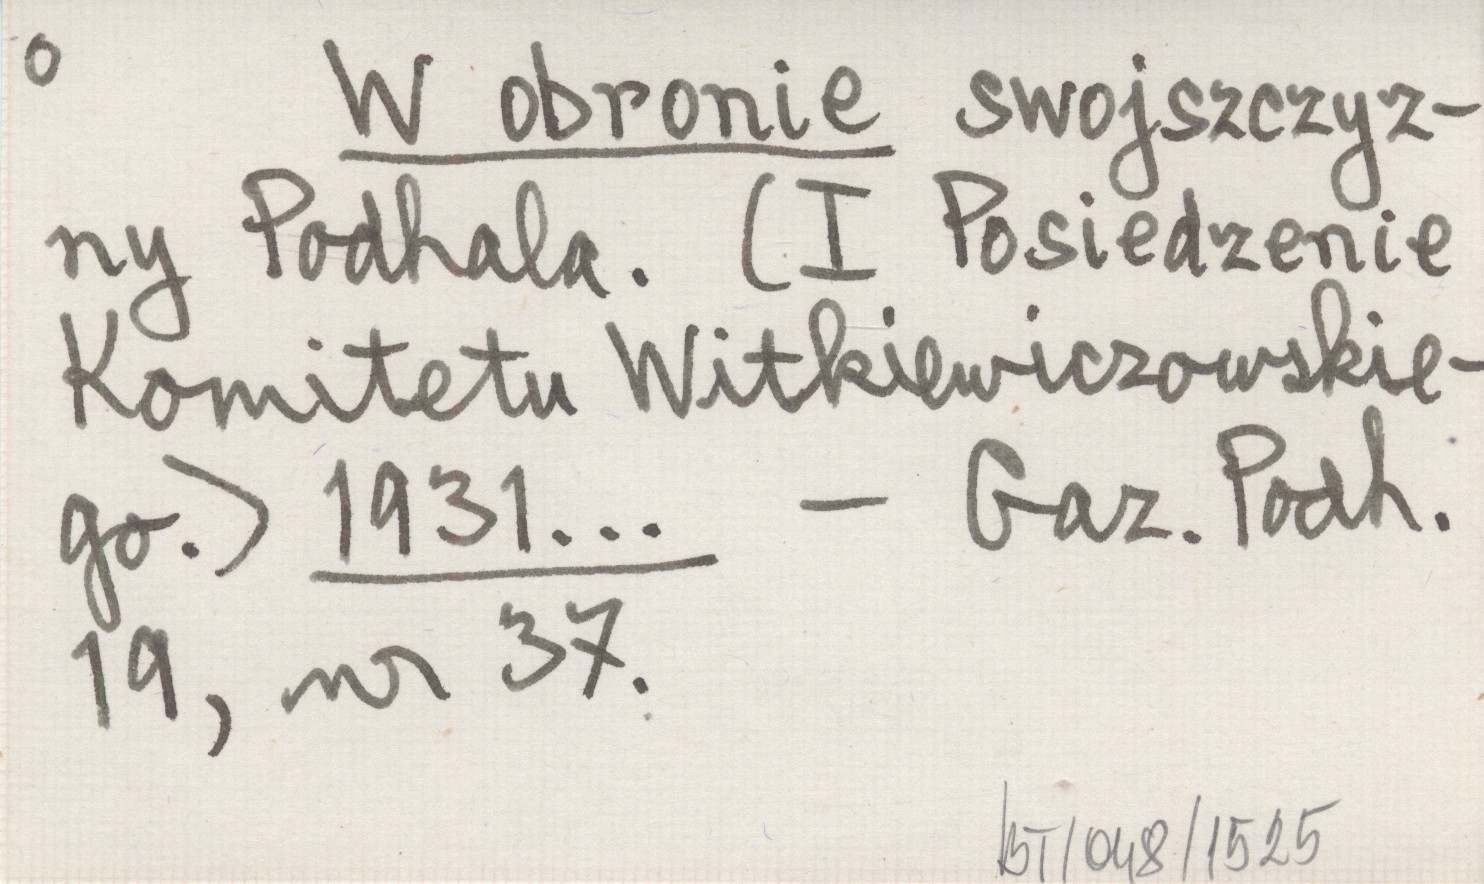 o
W obronie swojszczyz-
ny Podhala. (I Posiedzenie
Komitetu Witkiewiczowskie-
go.) 1931... – Gaz. Podh.
19, nr 37.
BT/048/1525